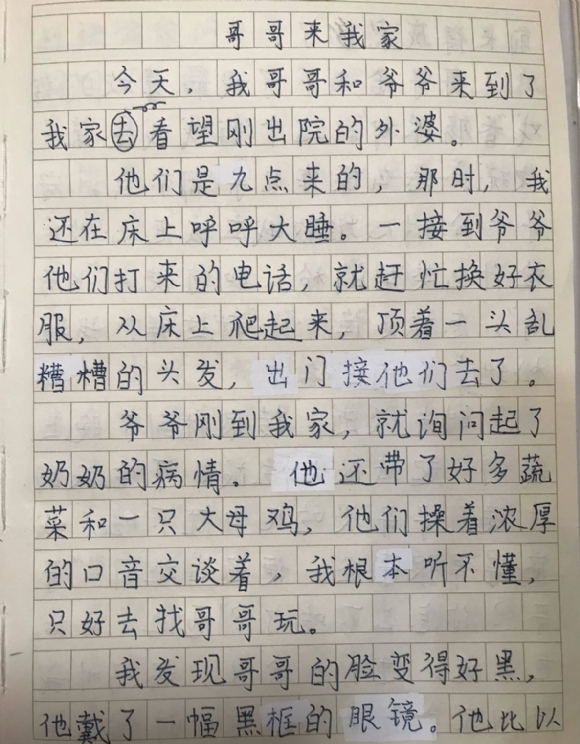 哥哥来我家
今天，我哥哥和爷爷来到了
我家去看望刚出院的外婆。
他们是九点来的，那时，我
还在床上呼呼大睡。一接到爷爷
他们打来的电话，就赶忙换好衣
服，从床上爬起来，顶着一头乱
糟槽的头发，出门接他们去了。
爷爷刚到我家，就询问起了
奶奶的病情。他还带了好多蔬
菜和一只大母鸡，他们操着浓厚
的口音交谈着，我根本听不懂，
只好去找哥哥玩。
我发现哥哥的脸变得好黑，
他戴了一幅黑框的眼镜。他比以